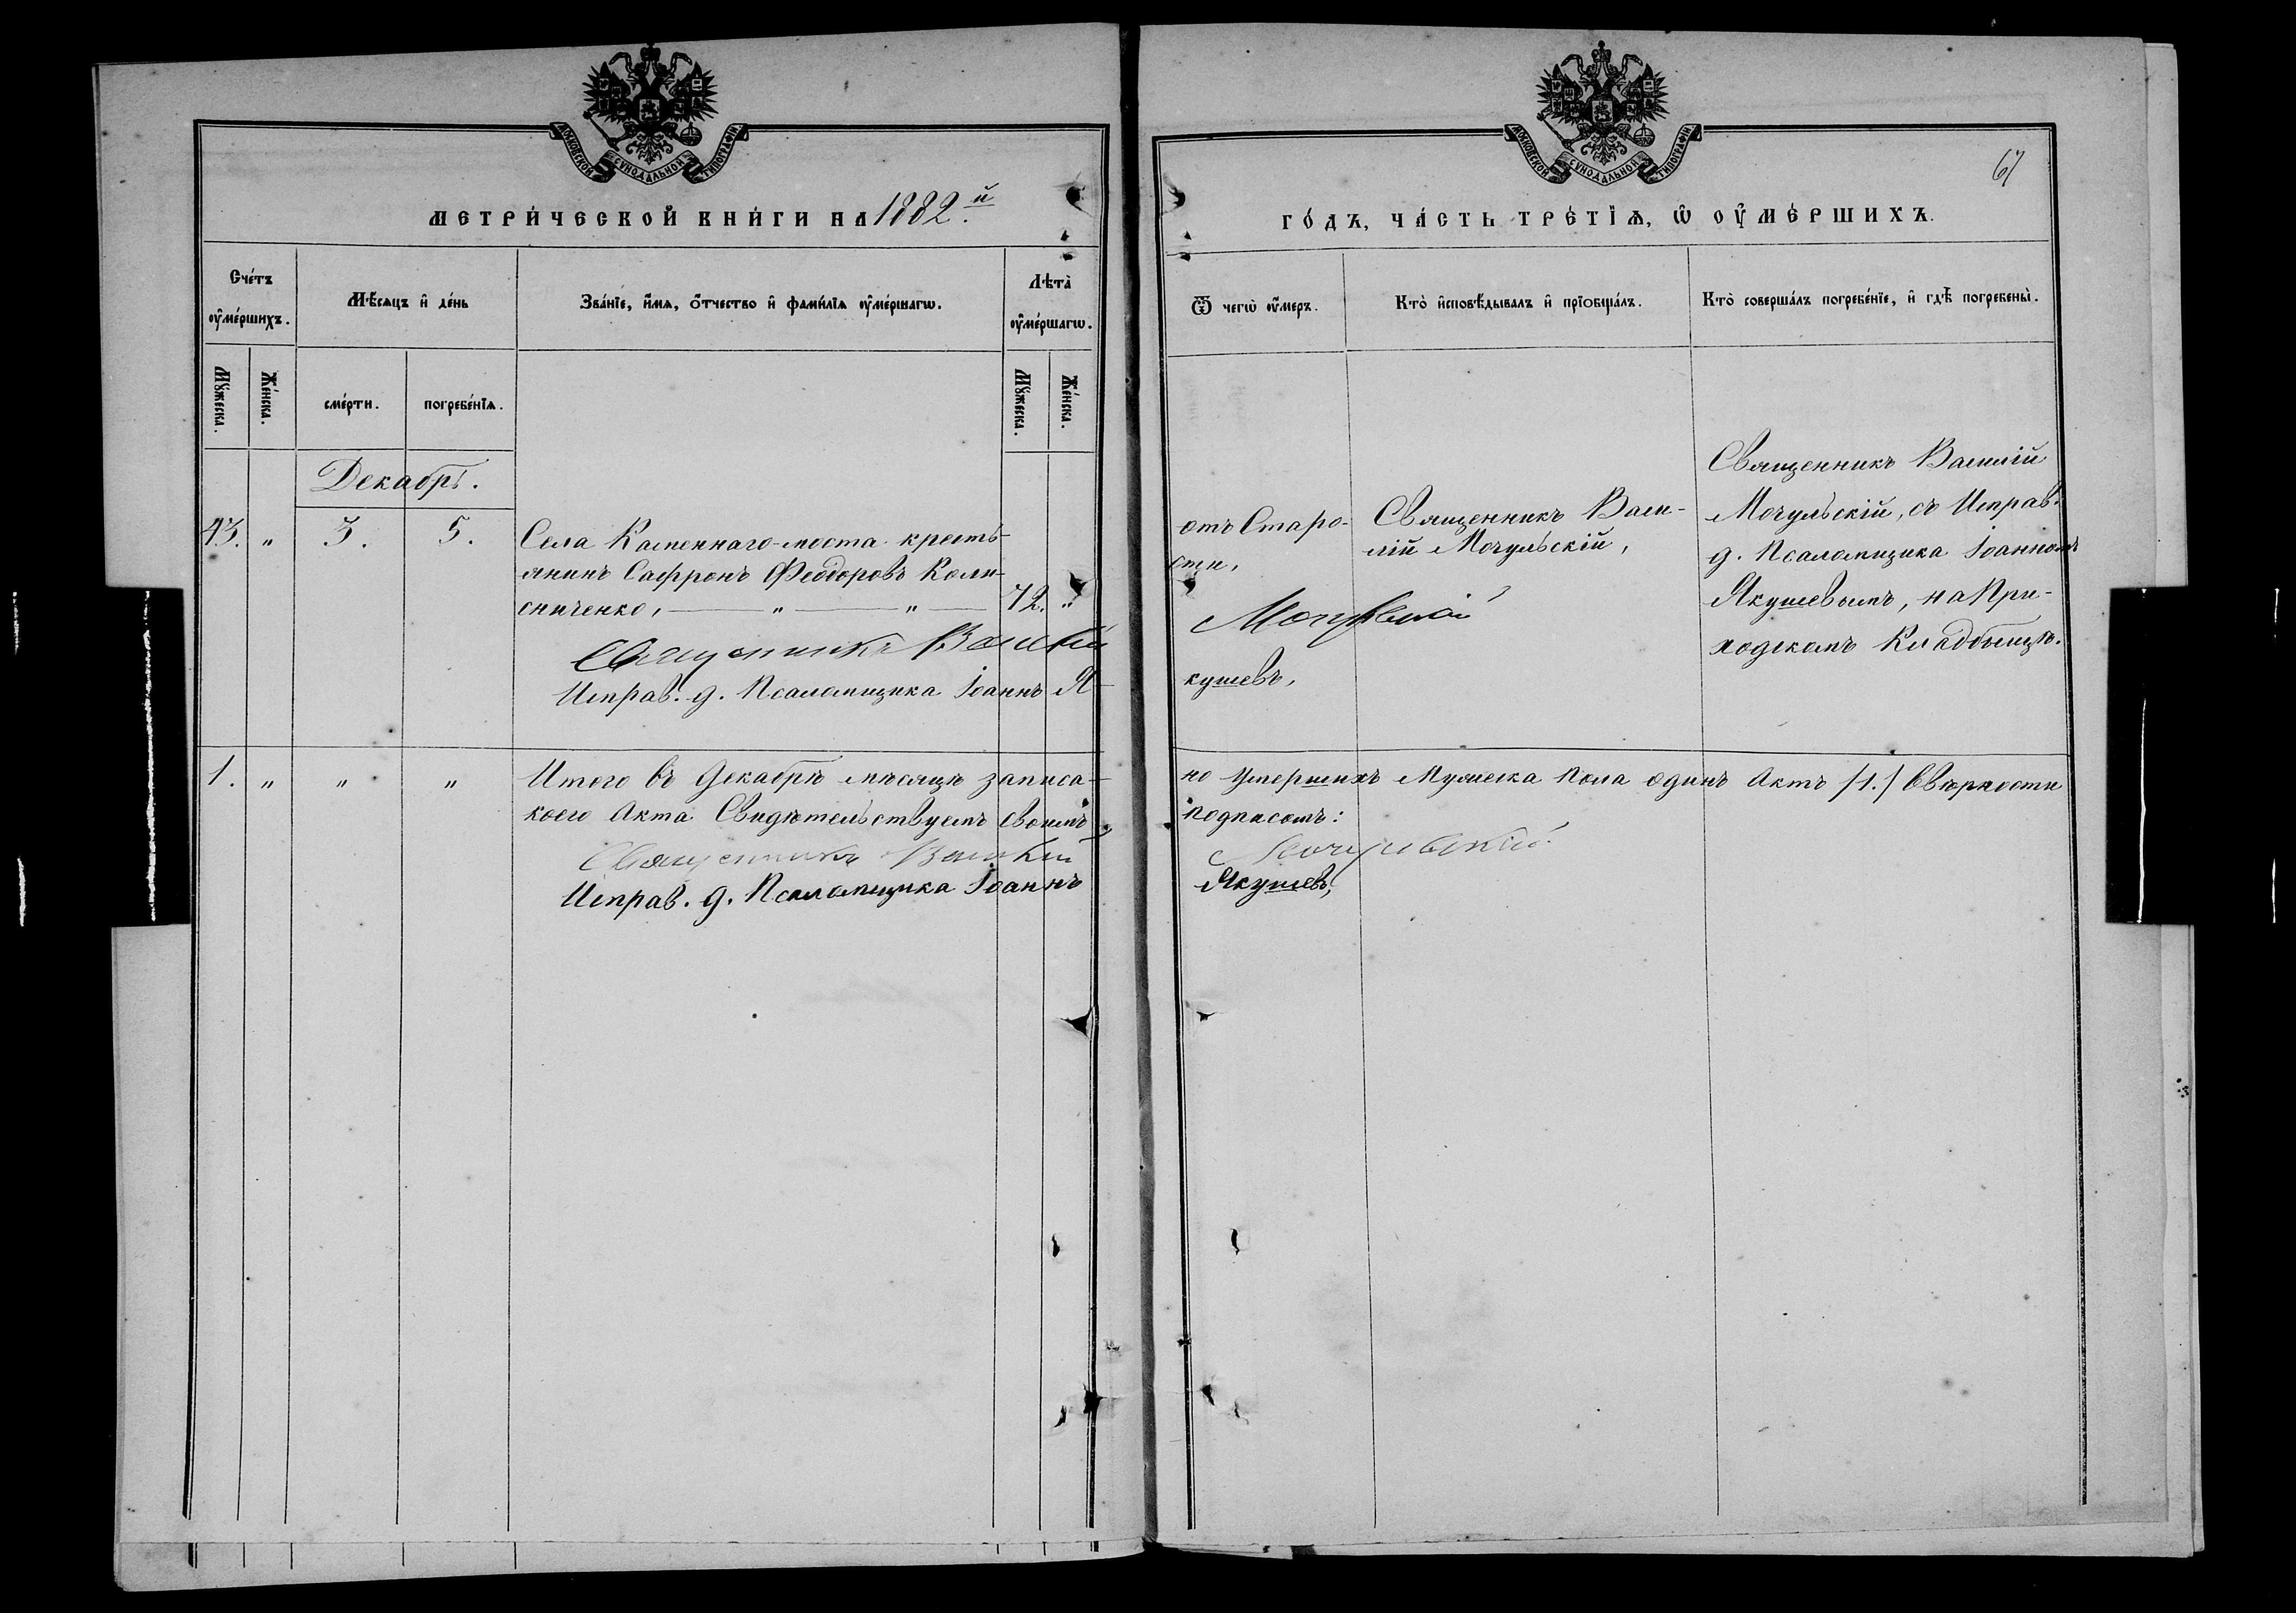 МОСКОВСКОЙ СѴНОДАЛЬНОЙ ТИПОГРАФІИ
МЕТРИ́ЧЕСКОЙ КНИ́ГИ НА 1882.й
Сче́тъ ᲂу҆ме́ршихъ.
Мѣ́сяцъ и҆ де́нь
Зва́нїе, и҆́мя, ѻ҆́тчество и҆ фами́лїя ᲂу҆ме́ршагѡ.
Лѣта̀ ᲂу҆ме́ршагѡ.
Мꙋ́жеска.
Же́нска.
сме́рти.
погребе́нїѧ.
Мꙋ́жеска.
Же́нска.
Декабрь.
43. " 3. 5.
Села Каменнаго-моста кресть-
янинъ Сафронъ Ѳеодоровъ Коли-
сниченко, — " — " — 72. "
Священникъ Василій
Исправ. д. Псаломщика Іоаннъ Я-
1. " " "
Итого въ Декабрѣ мѣсяцѣ записа-
коего Акта Свидѣтельствуемъ своимъ
Священникъ Василій
Исправ. д. Псаломщика Іоаннъ
МОСКОВСКОЙ СѴНОДАЛЬНОЙ ТИПОГРАФІИ
67
ГО́ДЪ, ЧА́СТЬ ТРЕ́ТЇѦ, Ѡ҆ ОУ҆МЕ́РШИХЪ.
Ѿ чегѡ̀ ᲂу҆́меръ.
Кто̀ и҆сповѣ́дывалъ и҆ прїобща́лъ.
Кто̀ соверша́лъ погребе́нїе, и҆ гдѣ̀ погребены̀.
отъ Старо-
сти,
Священникъ Васи-
лій Мочульскій,
Священникъ Василій
Мочульскій, съ Исправ.
д. Псаломщика Іоанномъ
Якушевымъ, на При-
ходскомъ Кладбищѣ.
Мочульскій
кушевъ,
но Умершихъ Мужеска пола одинъ Актъ /1./ Ввѣрности
подписомъ:
Мочульскій
Якушевъ,